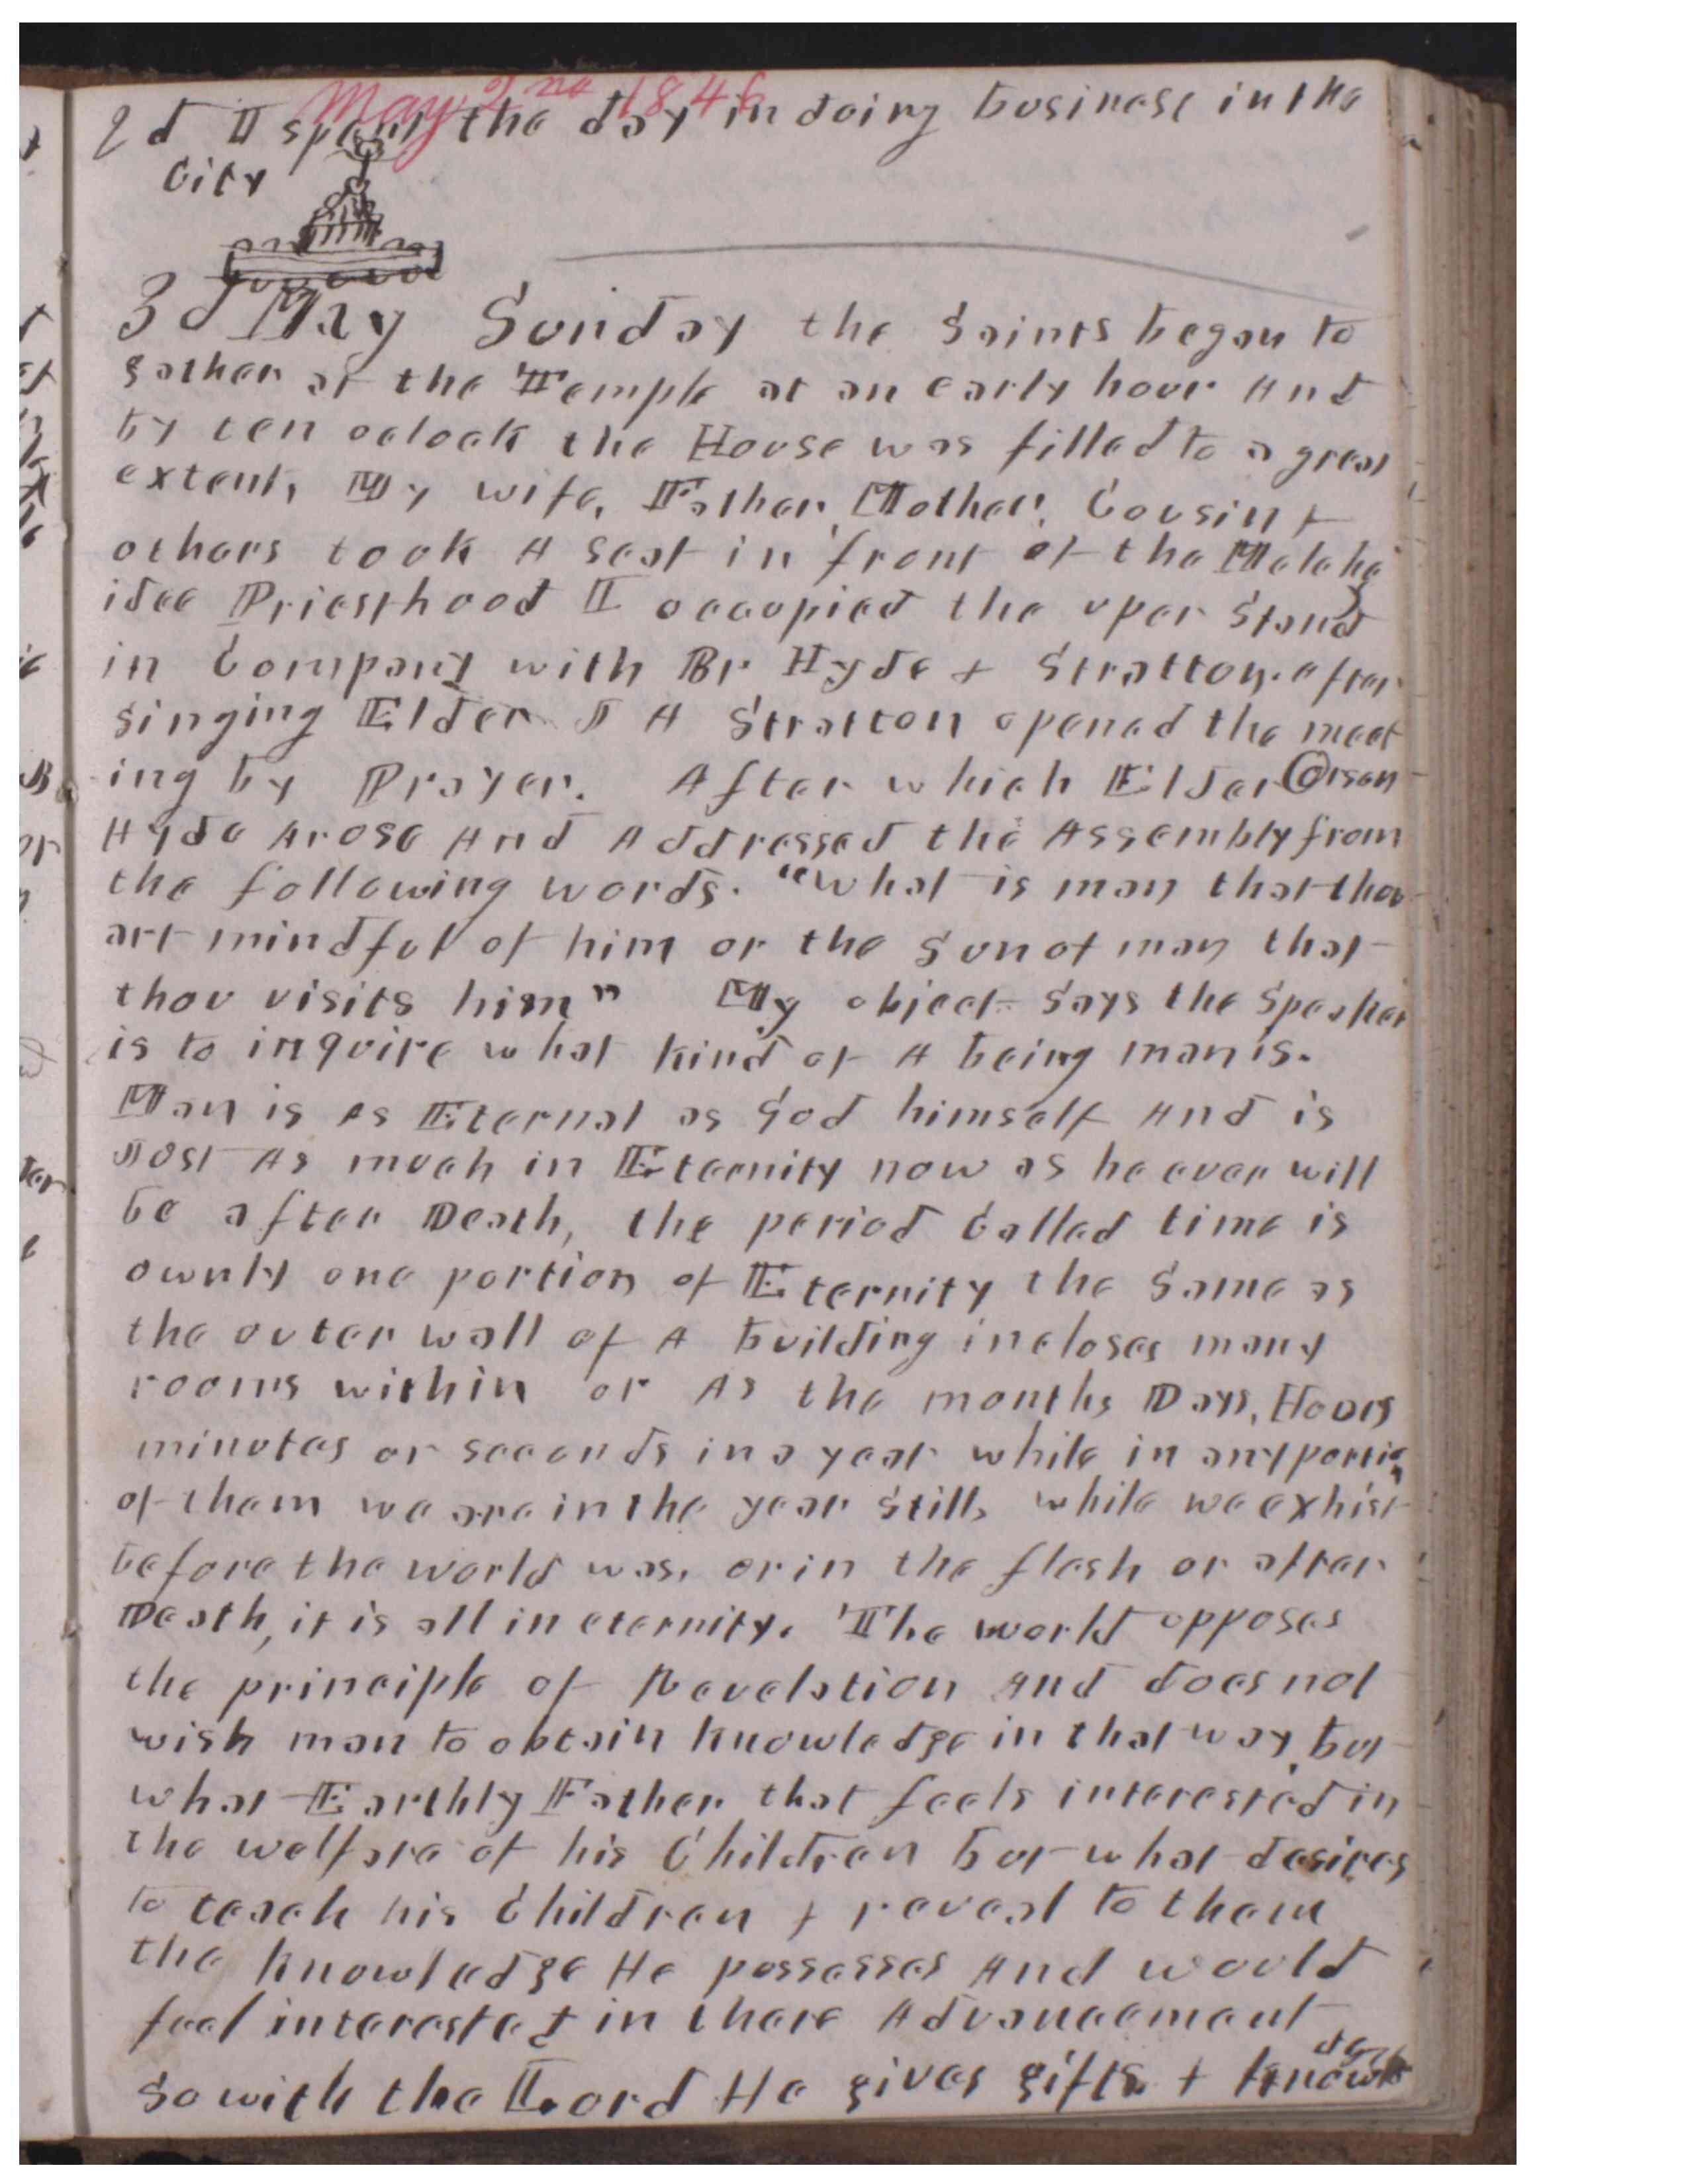 May 2nd 1846
2d I spent the day in doing business in the
City
3d May Sunday the Saints began to
gather at the Temple at an early hour And
by ten oclock the House was filled to a great
extent, My wife, Father, Mother, Cousin &
others took A seat in front of the Melchez
idec Priesthood I occupied the uper Stand
in Company with Br Hyde & Stratton. after
singing Elder J A Stratton opened the meet
ing by Prayer. After which Elder Orson
Hyde Arose And Addressed the Assembly from
the following words. "what is man that thou
art mindful of him or the Son of man that
thou visits him" My object says the Speaker
is to inquire what kind of A being man is.
Man is As Eternal as God himself And is
Just As much in Eternity now as he ever will
be after Death, the period Called time is
ownly one portion of Eternity the Same as
the outer wall of A building incloses many
rooms within or As the months, Days, Hours
minutes or seconds in a year while in any portion
of them we are in the year still, while we exhist
before the world was, or in the flesh or after
Death, it is all in eternity. The world opposes
the principle of Revelation And does not
wish man to obtain knowledge in that way, but
what Earthly Father that feels interested in
the welfare of his Children but what desires
to teach his Children & reveal to them
the knowledge He possesses And would
feel interested in there Advancement
So with the Lord He gives gifts & knowledge